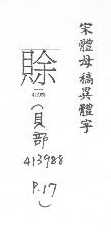 宋體母稿異體字
賖
(貝部
413988
P.17)